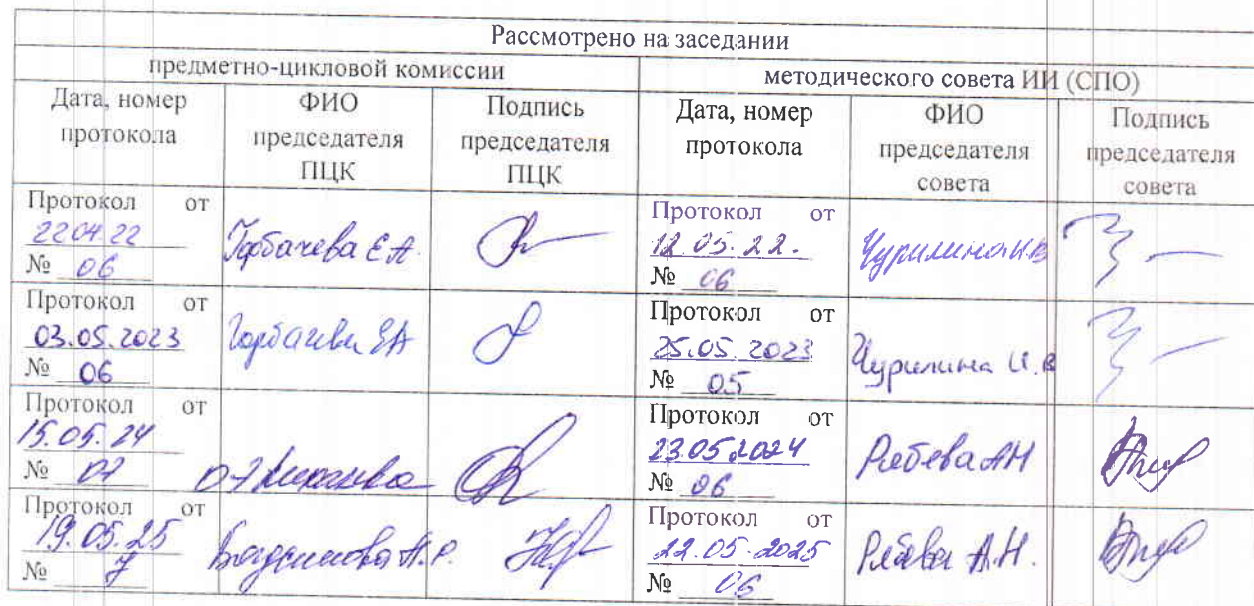 Рассмотрено на заседании
предметно-цикловой комиссии
методического совета ИИ (СПО)
Дата, номер
протокола
ФИО
председателя
ПЦК
Подпись
председателя
ПЦК
Дата, номер
протокола
ФИО
председателя
совета
Подпись
председателя
совета
Протокол от
22.04.22
№ 06
Горбачева Е А.
Протокол от
12.05.22.
№ 06
Чурилина И.В
Протокол от
03.05.2023
№ 06
Горбачева ЕА
Протокол от
25.05.2023
№ 05
Чурилина И.В
Протокол от
15.05.24
№ 07
Протокол от
23.05.2024
№ 06
Рябева АН
Протокол от
19.05.25
№ 7
Протокол от
22.05.2025
№ 06
Рябева А.Н.